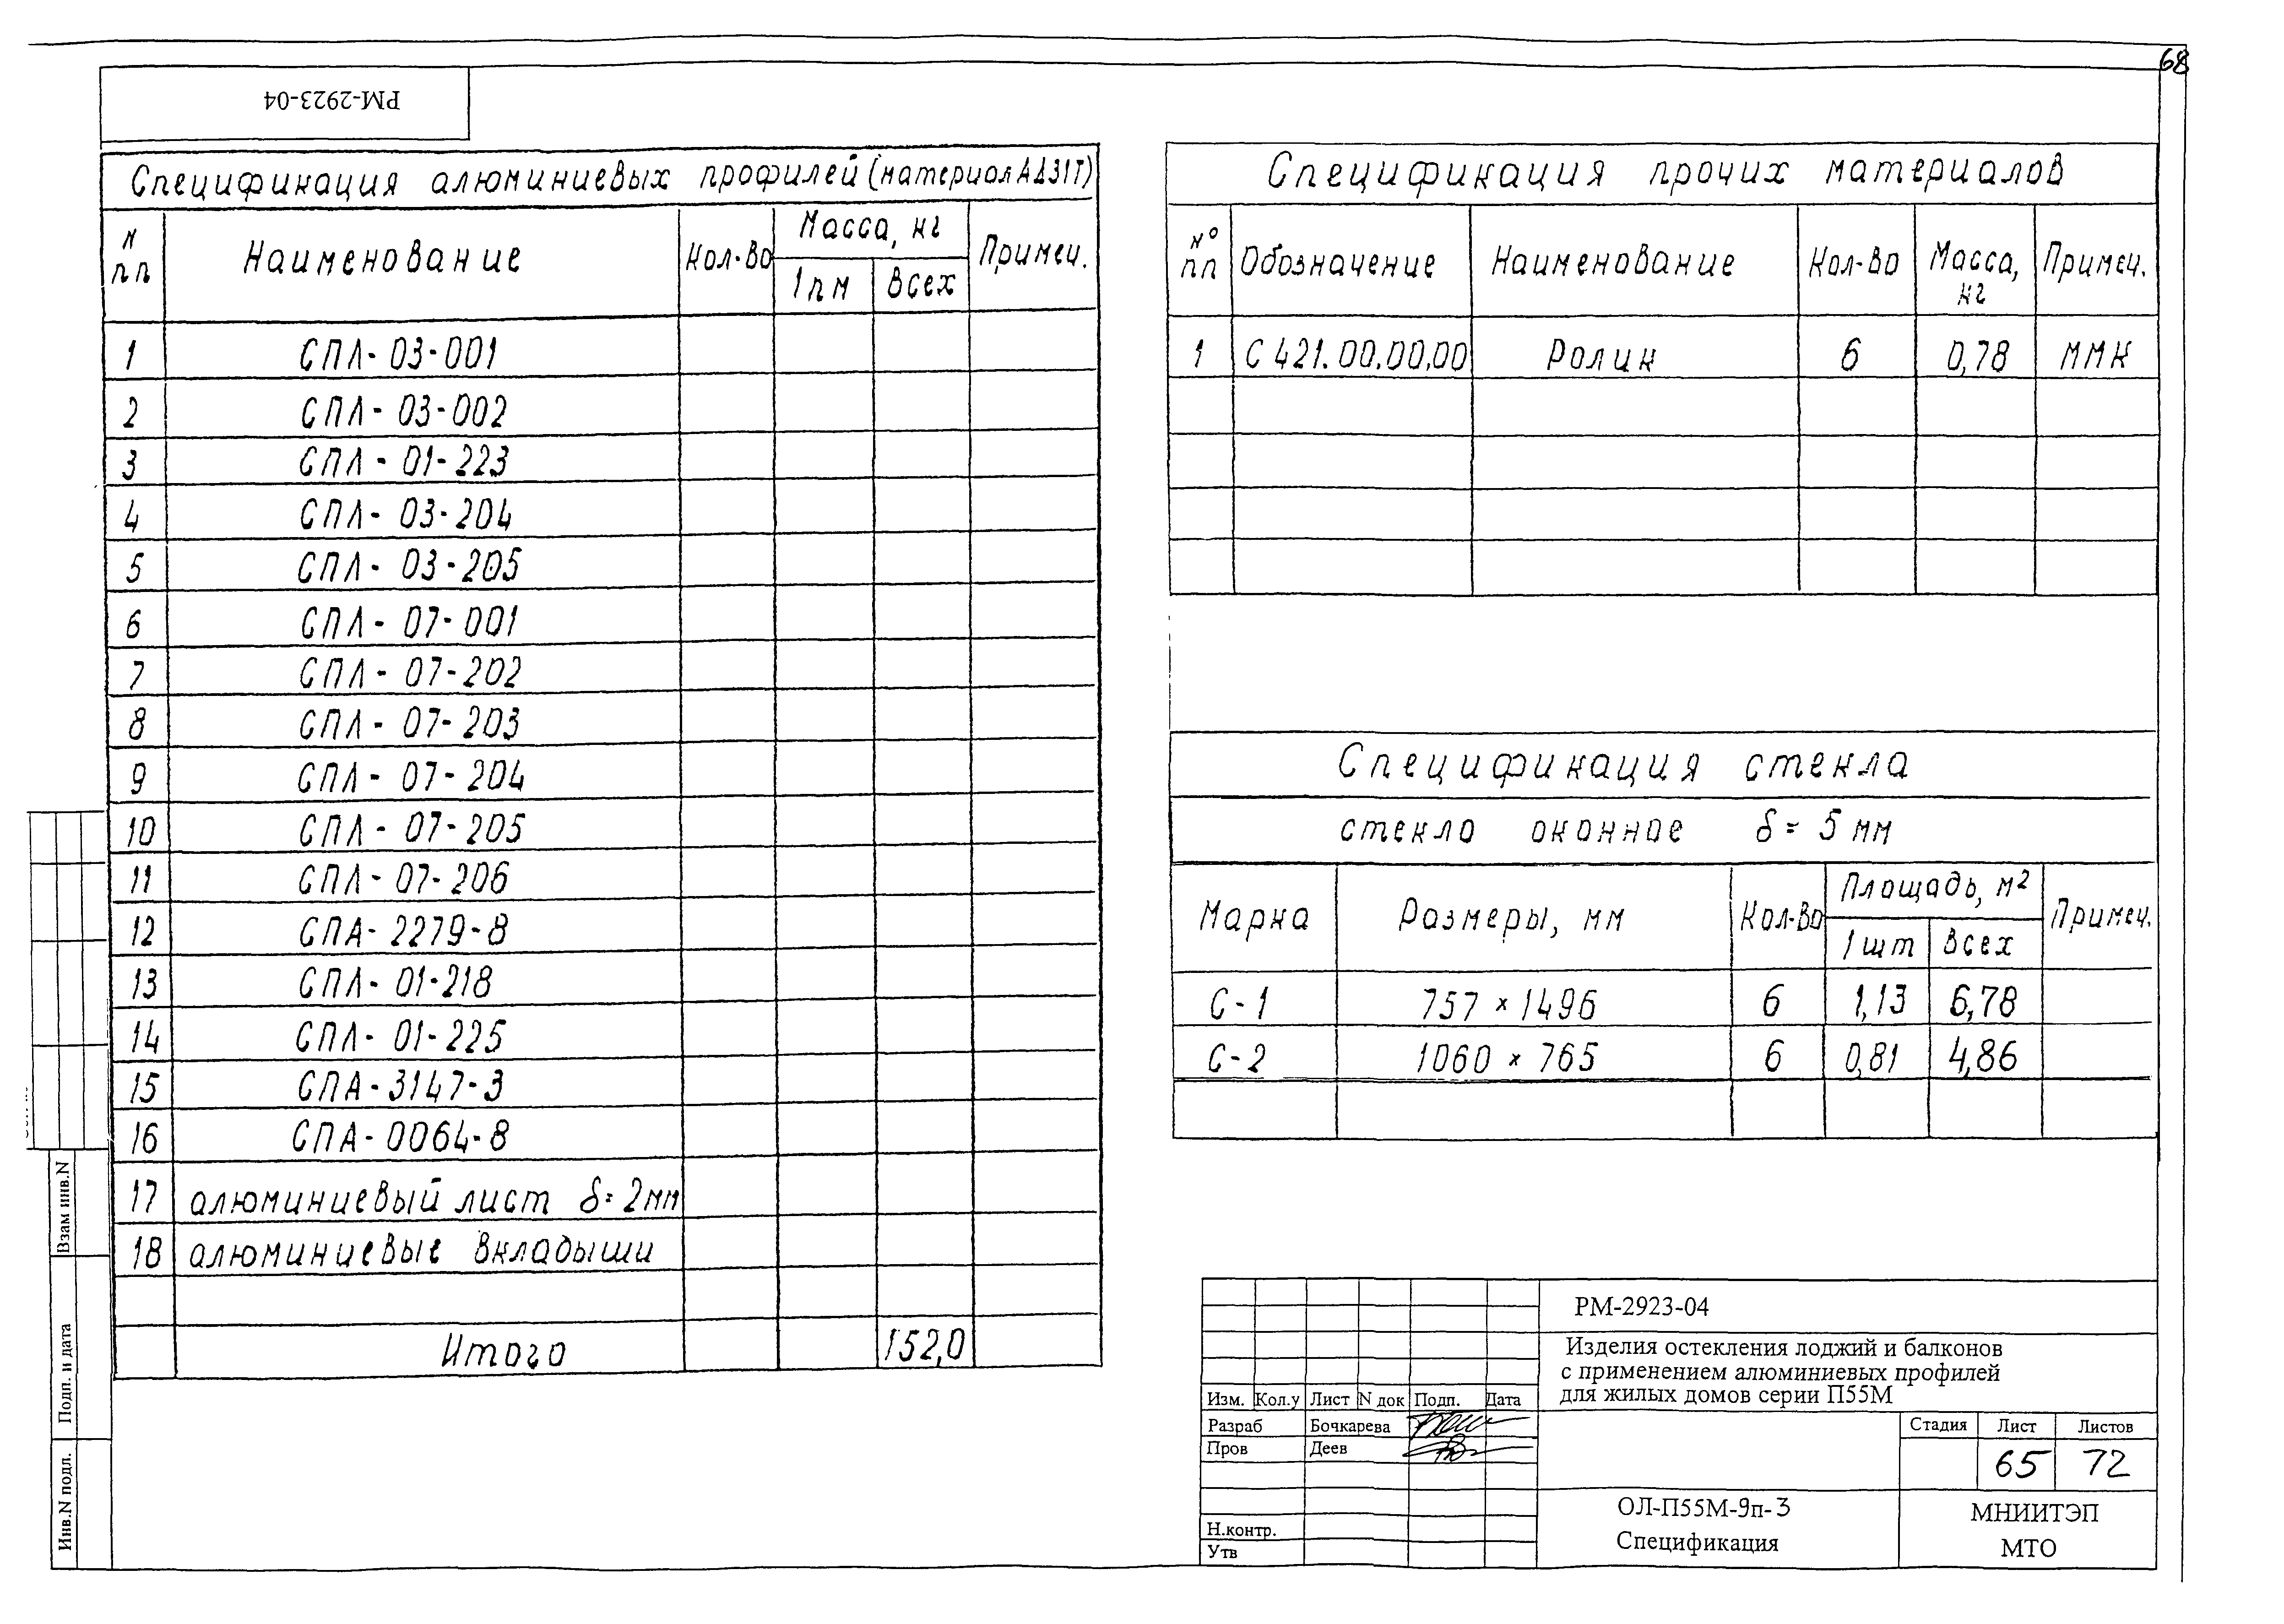 68
РМ-2923-04
Спецификация алюминиевых профилей (материал АД31Т)
N пп Наименование Кол-во Масса, кг Примеч.
1пм Всех
1 СПЛ-03-001
2 СПЛ-03-002
3 СПЛ-01-223
4 СПЛ-03-204
5 СПЛ-03-205
6 СПЛ-07-001
7 СПЛ-07-202
8 СПЛ-07-203
9 СПЛ-07-204
10 СПЛ-07-205
11 СПЛ-07-206
12 СПА-2279-8
13 СПЛ-01-218
14 СПЛ-01-225
15 СПА-3147-3
16 СПА-0064-8
17 алюминиевый лист δ=2мм
18 алюминиевые вкладыши
Итого 152,0
Спецификация прочих материалов
№ пп Обозначение Наименование Кол-во Масса, кг Примеч.
1 С 421.00.00.00 Ролик 6 0,78 ММК
Спецификация стекла
стекло оконное δ= 5 мм
Марка Размеры, мм Кол-во Площадь, м² Примеч.
1шт Всех
С-1 757 × 1496 6 1,13 6,78
С-2 1060 × 765 6 0,81 4,86
Взам инв.N
Подп. и дата
Инв.N подл.
РМ-2923-04
Изделия остекления лоджий и балконов
с применением алюминиевых профилей
для жилых домов серии П55М
Изм. Кол.у Лист N док Подп. Дата
Разраб Бочкарева
Пров Деев
Н.контр.
Утв
Стадия Лист Листов
65 72
ОЛ-П55М-9п-3
Спецификация
МНИИТЭП
МТО